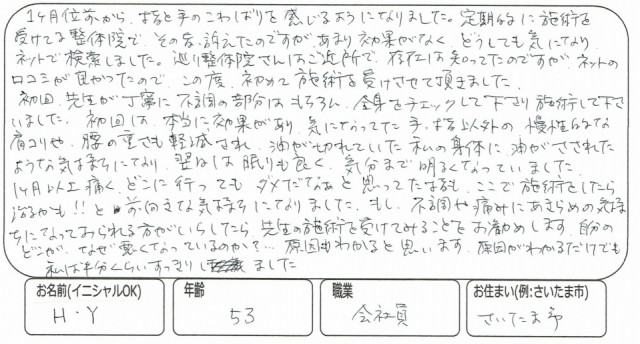 1ヶ月位前から、指と手のこわばりを感じるようになりました。定期的に施術を
受けてる整体院で、その旨、訴えたのですが、あまり効果がなく、どうしても気になり、
ネットで検索しました。巡り整体院さんはご近所で、存在は知ってたのですが、ネットの
口コミが良かったので、この度、初めて施術を受けさせて頂きました。
初回、先生が丁寧に不調の部分はもちろん、全身をチェックして下さり施術して下さ
いました。初回は、本当に効果があり、気になってた手、指以外の慢性的な
肩コリや、腰の重さも軽減され、油が切れていた私の身体に、油がさされた
ような気持ちになり、翌日は眠りも良く、気分まで明るくなっていました。
1ヶ月以上痛く、どこに行ってもダメだなぁと思ってた指も、ここで施術をしたら
治るかも!!と前向きな気持ちになりました。もし、不調や痛みにあきらめの気持
ちになっておられる方がいらしたら、先生の施術を受けてみることをお勧めします。自分の
どこが、なぜ悪くなっているのか?…原因もわかると思います。原因がわかるだけでも
私は半分くらいすっきりしました
お名前(イニシャルOK) 年齢 職業 お住まい(例:さいたま市)
H・Y 53 会社員 さいたま市